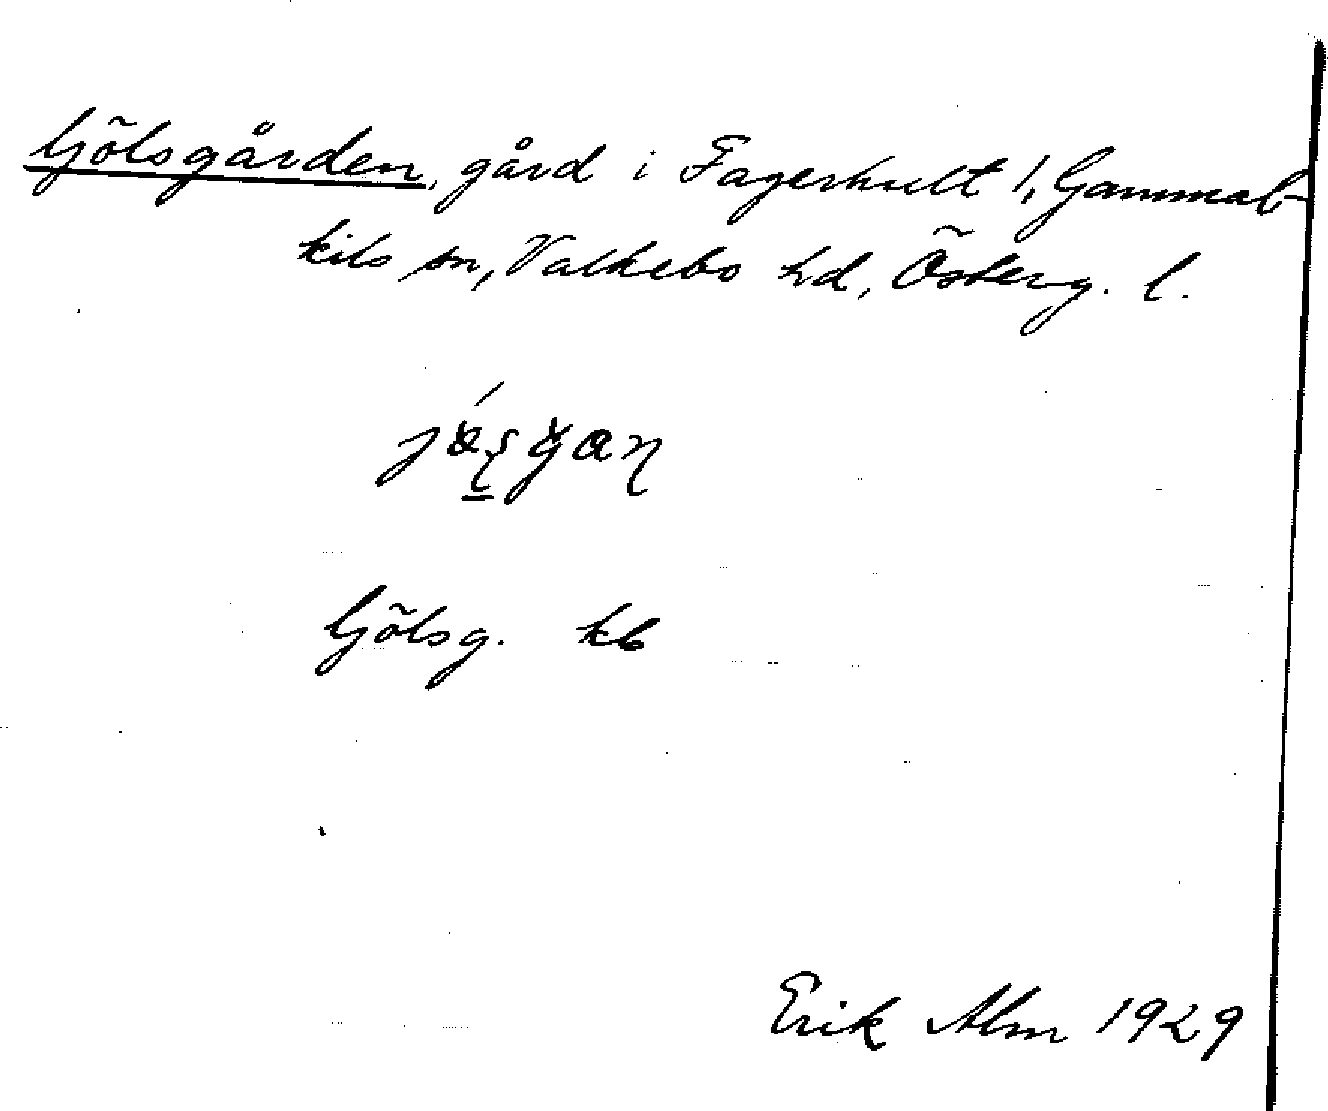 Gölsgården, gård i Fagerhult 1, Gammal-
kils sn, Valkebo hd, Österg. l.
Gölsg. kb
Erik Alm 1929